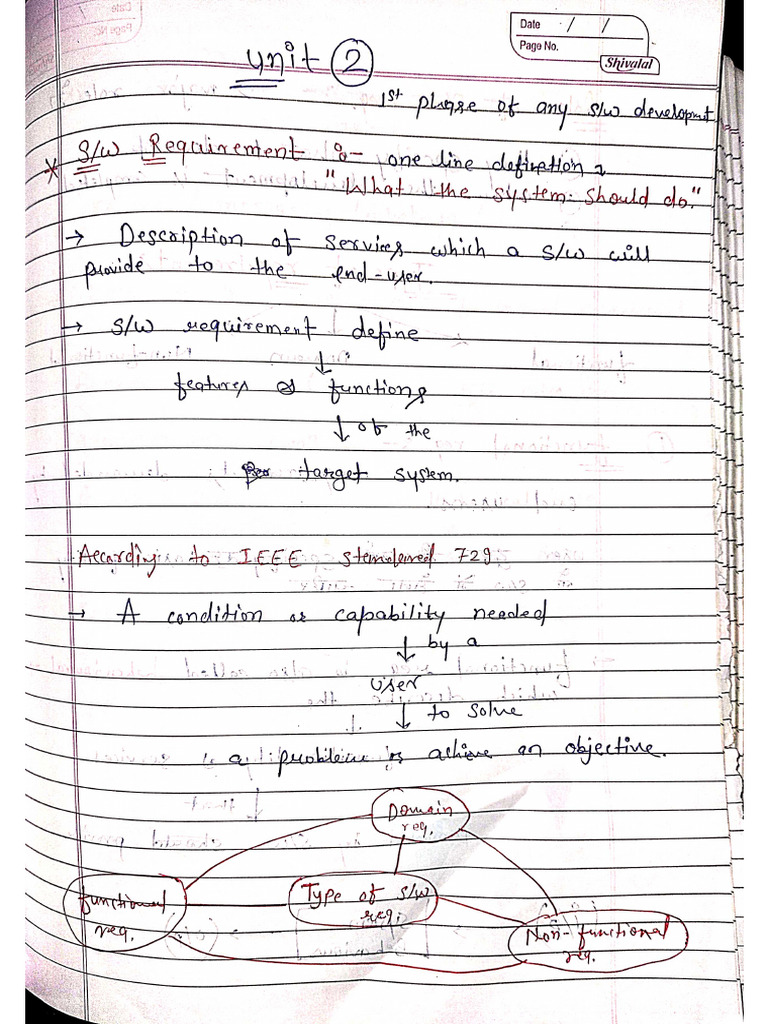 Date / /
Page No.
Shivalal
Unit 2
1st phase of any s/w development
* S/w Requirement :- one line definition
"What the system should do."
→ Description of services which a s/w will
provide to the end-user.
→ S/w requirement define
↓
features & functions
↓ of the
target system.
According to IEEE 729
→ A condition or capability needed
↓ by a
user
↓ to solve
a problem or achieve an objective.
Domain
req.
functional
req.
Type of s/w
req.
Non-functional
req.